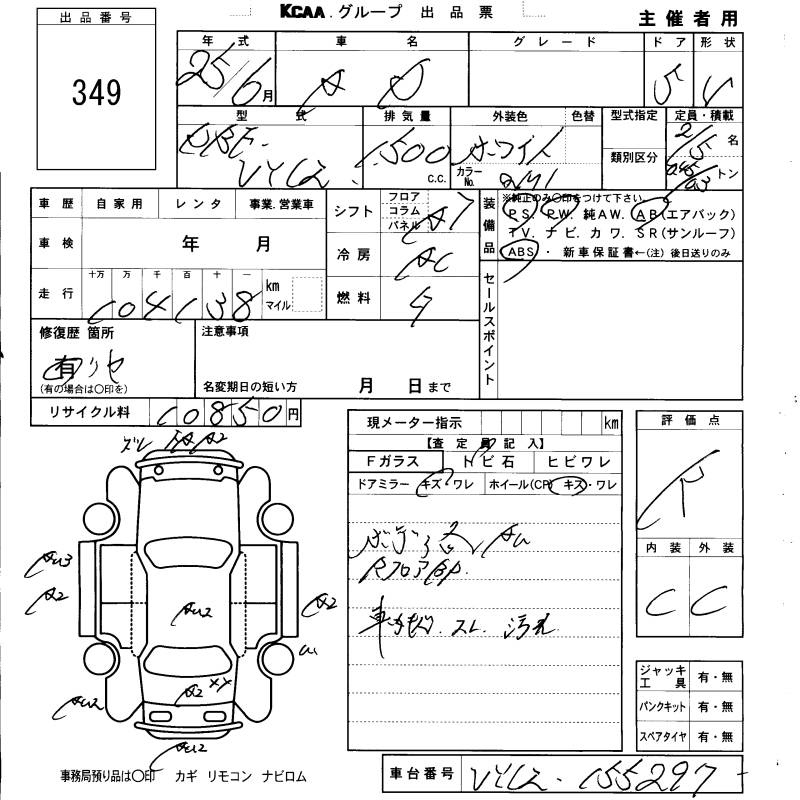 KCAA.グループ 出品票
主催者用
出品番号
349
年式 車名 グレード ドア 形状
25/6月 AD 5 V
型式 排気量 外装色 色替 型式指定 定員・積載
DBF- 1500 c.c. ホワイト 2/5名
VY12 カラーNo. 類別区分 トン
車歴 自家用 レンタ 事業.営業車
シフト フロア コラム パネル A7
装備品 ※純正のみ〇印をつけて下さい。
PS. PW. 純AW. AB(エアバック)
TV. ナビ. カワ. SR(サンルーフ)
ABS ・ 新車保証書←(注) 後日送りのみ
車検 年 月
冷房 AC
走行 十万 万 千 百 十 一
104138 km マイル
燃料 G
セールスポイント
修復歴 箇所
有
(有の場合は〇印を)
注意事項
名変期日の短い方 月 日まで
リサイクル料 10850円
現メーター指示 km
【査定員記入】
Fガラス トビ石 ヒビワレ
ドアミラー キズ・ワレ ホイール(CP) キズ・ワレ
評価点
R
内装 外装
C C
ズレ A2
AU3
A2
AU2
A2
A2 XY
AU2
AU2
RフロアBP
車内 スレ 汚れ
ジャッキ工具 有・無
パンクキット 有・無
スペアタイヤ 有・無
事務局預り品は〇印 カギ リモコン ナビロム
車台番号 VY12-155297